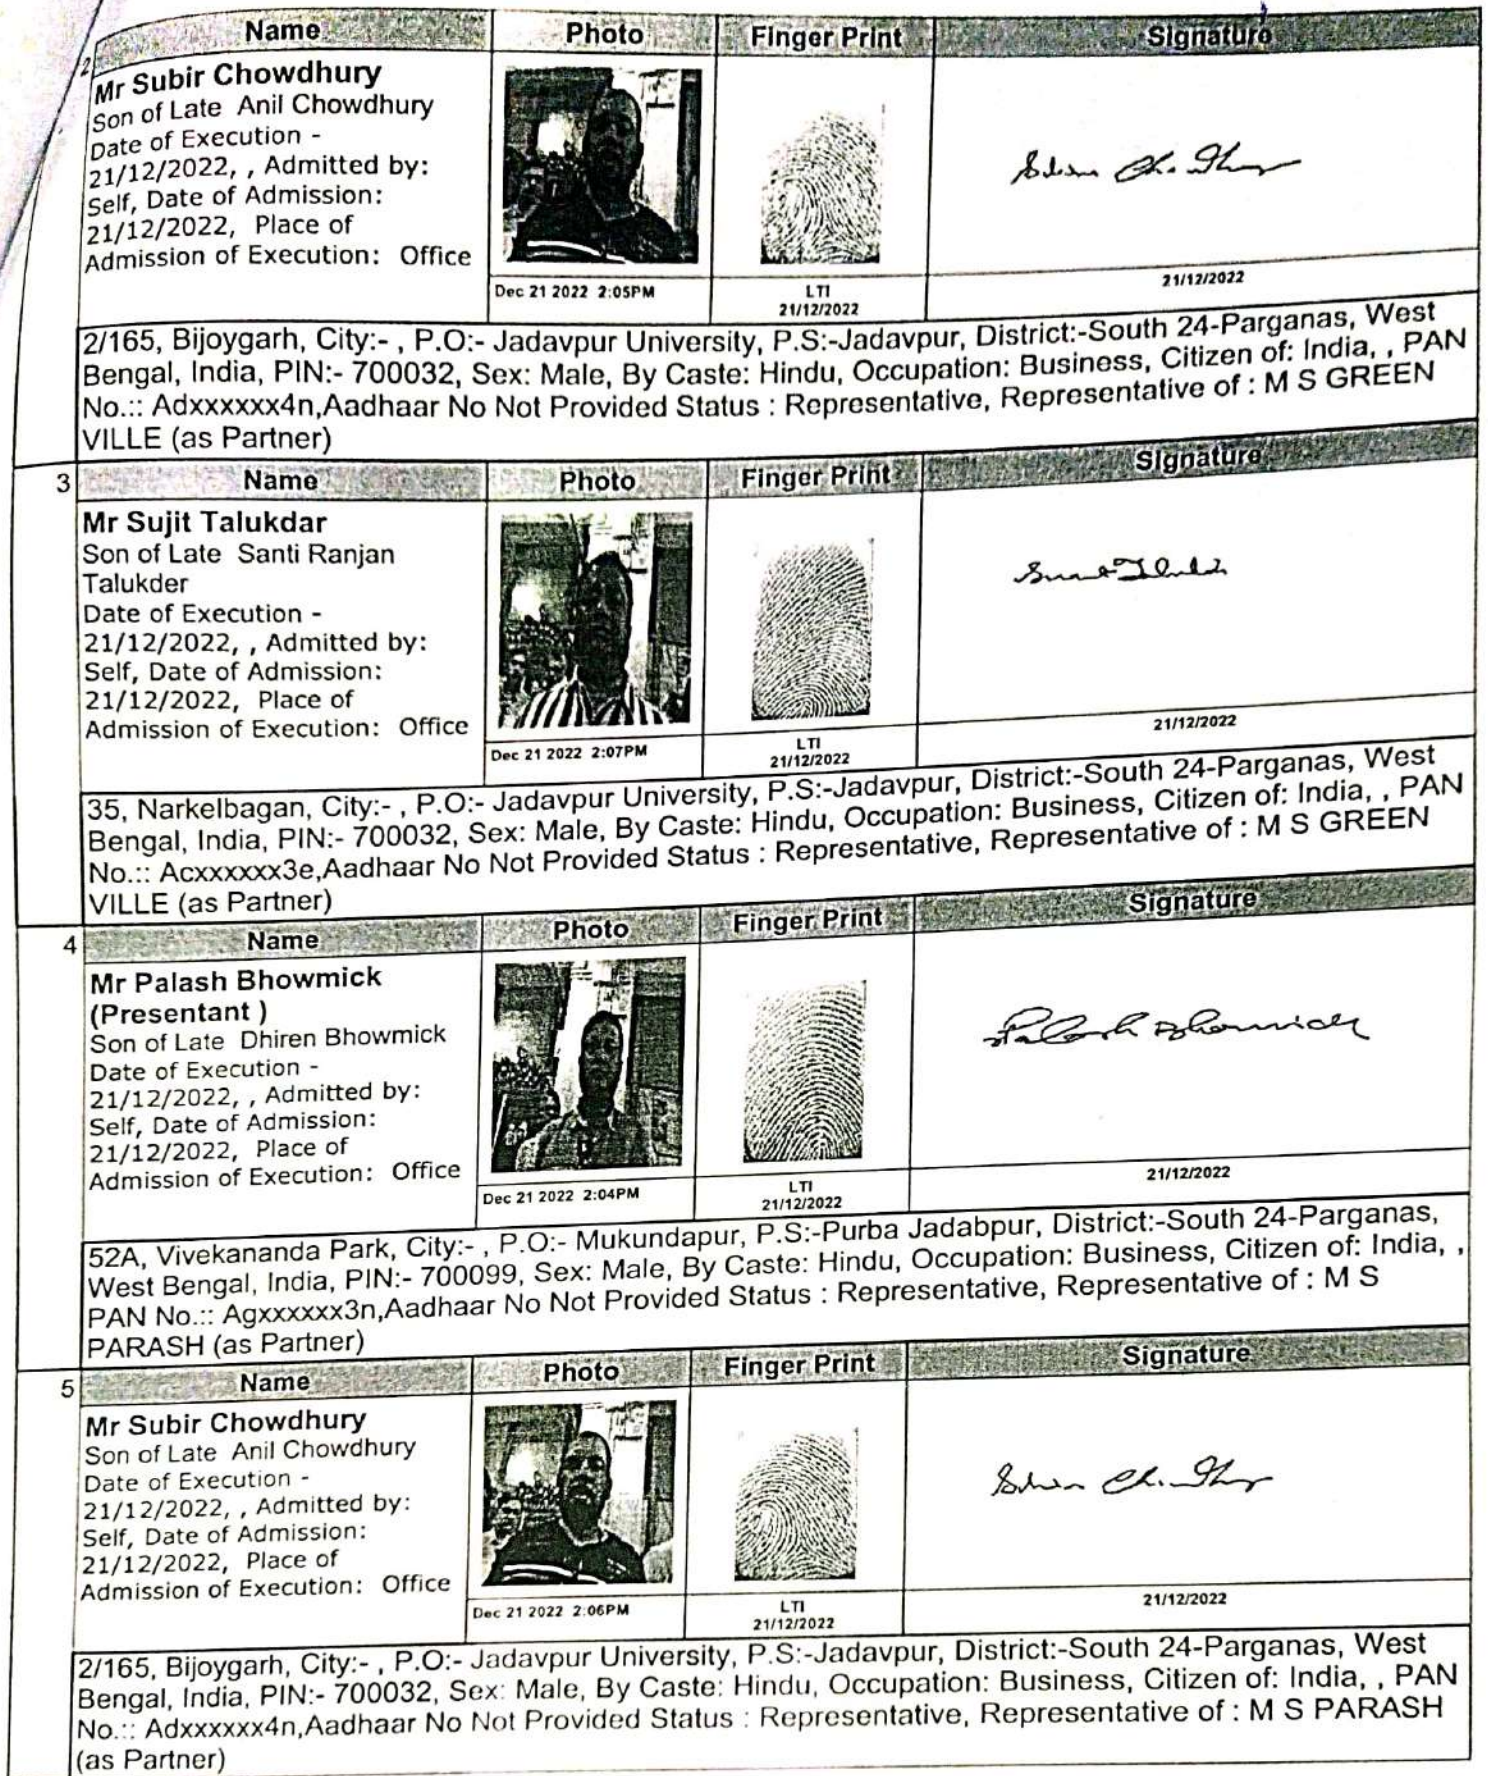 Name Photo Finger Print Signature
2
Mr Subir Chowdhury
Son of Late Anil Chowdhury
Date of Execution -
21/12/2022, , Admitted by:
Self, Date of Admission:
21/12/2022, Place of
Admission of Execution: Office
Dec 21 2022 2:05PM
LTI
21/12/2022
21/12/2022
2/165, Bijoygarh, City:- , P.O:- Jadavpur University, P.S:-Jadavpur, District:-South 24-Parganas, West
Bengal, India, PIN:- 700032, Sex: Male, By Caste: Hindu, Occupation: Business, Citizen of: India, , PAN
No.:: Adxxxxxx4n,Aadhaar No Not Provided Status : Representative, Representative of : M S GREEN
VILLE (as Partner)
3 Name Photo Finger Print Signature
Mr Sujit Talukdar
Son of Late Santi Ranjan
Talukder
Date of Execution -
21/12/2022, , Admitted by:
Self, Date of Admission:
21/12/2022, Place of
Admission of Execution: Office
Dec 21 2022 2:07PM
LTI
21/12/2022
21/12/2022
35, Narkelbagan, City:- , P.O:- Jadavpur University, P.S:-Jadavpur, District:-South 24-Parganas, West
Bengal, India, PIN:- 700032, Sex: Male, By Caste: Hindu, Occupation: Business, Citizen of: India, , PAN
No.:: Acxxxxxx3e,Aadhaar No Not Provided Status : Representative, Representative of : M S GREEN
VILLE (as Partner)
4 Name Photo Finger Print Signature
Mr Palash Bhowmick
(Presentant )
Son of Late Dhiren Bhowmick
Date of Execution -
21/12/2022, , Admitted by:
Self, Date of Admission:
21/12/2022, Place of
Admission of Execution: Office
Palash Bhowmick
Dec 21 2022 2:04PM
LTI
21/12/2022
21/12/2022
52A, Vivekananda Park, City:- , P.O:- Mukundapur, P.S:-Purba Jadabpur, District:-South 24-Parganas,
West Bengal, India, PIN:- 700099, Sex: Male, By Caste: Hindu, Occupation: Business, Citizen of: India, ,
PAN No.:: Agxxxxxx3n,Aadhaar No Not Provided Status : Representative, Representative of : M S
PARASH (as Partner)
5 Name Photo Finger Print Signature
Mr Subir Chowdhury
Son of Late Anil Chowdhury
Date of Execution -
21/12/2022, , Admitted by:
Self, Date of Admission:
21/12/2022, Place of
Admission of Execution: Office
Dec 21 2022 2:06PM
LTI
21/12/2022
21/12/2022
2/165, Bijoygarh, City:- , P.O:- Jadavpur University, P.S:-Jadavpur, District:-South 24-Parganas, West
Bengal, India, PIN:- 700032, Sex: Male, By Caste: Hindu, Occupation: Business, Citizen of: India, , PAN
No.:: Adxxxxxx4n,Aadhaar No Not Provided Status : Representative, Representative of : M S PARASH
(as Partner)